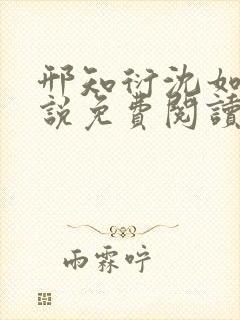 邢知衍沈如
說免費閱讀
雨霖咛